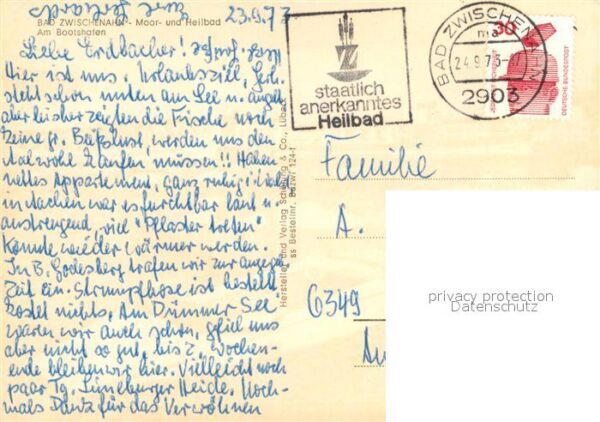 23.9.73
BAD ZWISCHENAHN - Moor- und Heilbad
Am Bootshafen
Liebe Erdbacher!
Hier ist uns. Urlaubsziel,
steht schon unten am See u. angelt
aber bisher zeigten die Fische noch
keine gr. Beißlust, werden uns den
Aal wohl kaufen müssen!! Haben
nettes Appartement, ganz ruhig!
in Aachen war es furchtbar laut u.
anstrengend, viel "Pflaster treten"
Könnte wieder wärmer werden.
In B. Godesberg trafen wir zur angegeb.
Zeit ein. Strumpfhose ist bestellt
kostet nichts. Am Dümmer See
waren wir auch schon, gefiel uns
aber nicht so gut, bis z. Wochen-
ende bleiben wir hier. Vielleicht noch
paar Tg. Lüneburger Heide. Noch-
mals Dank für das Verwöhnen
Hersteller und Verlag Schöning & Co., Lübeck
staatlich
anerkanntes
Heilbad
BAD ZWISCHENAHN
24.9.73-17
2903
30
DEUTSCHE BUNDESPOST
Familie
A.
6349
privacy protection
Datenschutz